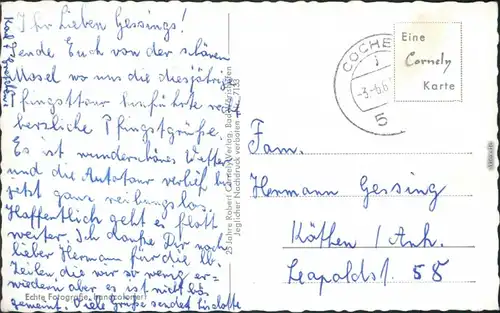 Ihr Lieben Gessings!
Sende Euch von der schönen
Mosel wo uns die diesjährige
Pfingsttour hinführte recht
herzliche Pfingstgrüße.
Es ist wunderschönes Wetter
und die Autotour verlief bis
jetzt ganz reibungslos.
Hoffentlich geht es flott
weiter. Ich danke Dir noch
lieber Hermann für die lb.
Zeilen die wir so wenig er-
widern aber es ist nicht bös
gemeint. Viele Grüße sendet Liselotte
Echte Fotografie, handcoloriert
25 Jahre Robert Cornely Verlag, Bad
Jeglicher Nachdruck verboten 7133
COCHE
-3.-6.6
5
Eine
Cornely
Karte
Fam.
Hermann Gessing
Köthen / Anh.
Leopoldst. 58